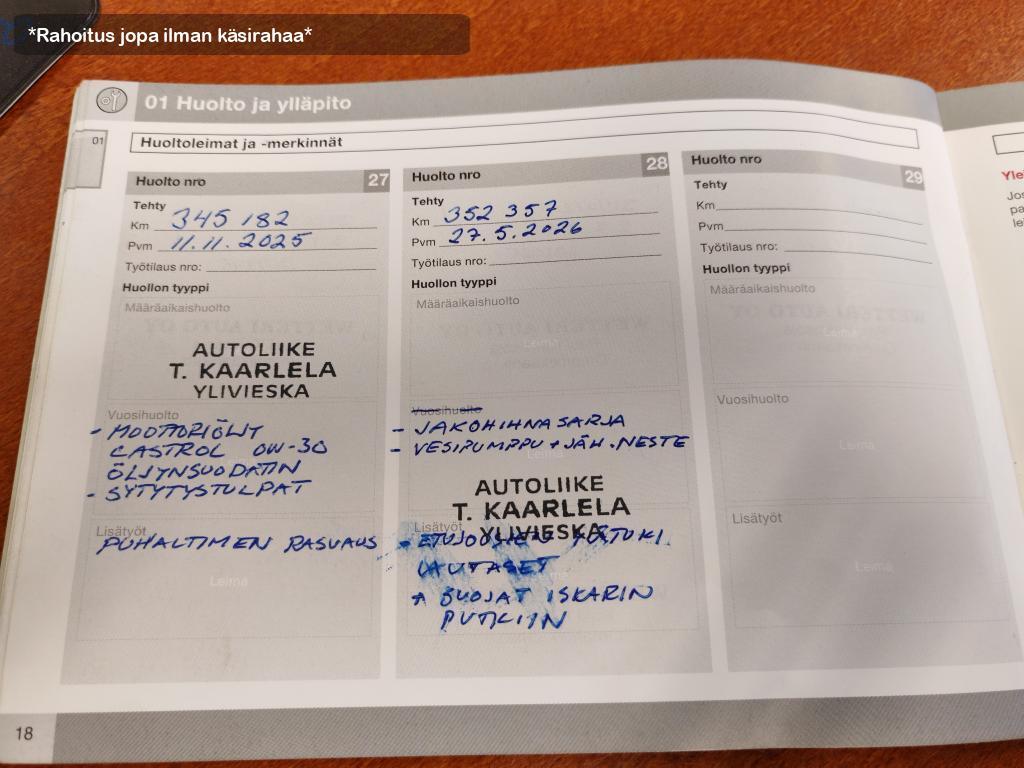 *Rahoitus jopa ilman käsirahaa*
01 Huolto ja ylläpito
01
Huoltoleimat ja -merkinnät
Huolto nro 27
Tehty
Km 345 182
Pvm 11.11.2025
Työtilaus nro:
Huollon tyyppi
Määräaikaishuolto
AUTOLIIKE
T. KAARLELA
YLIVIESKA
Vuosihuolto
- MOOTTORIÖLJYT
CASTROL 0W-30
ÖLJYNSUODATIN
- SYTYTYSTULPAT
Lisätyöt
PUHALTIMEN RASVAUS
Leima
Huolto nro 28
Tehty
Km 352 357
Pvm 27.5.2026
Työtilaus nro:
Huollon tyyppi
Määräaikaishuolto
Leima
Vuosihuolto
- JAKOHIHNASARJA
- VESIPUMPPU + JÄH.NESTE
Leima
AUTOLIIKE
T. KAARLELA
YLIVIESKA
Lisätyöt
LAUTASET
+ SUOJAT ISKARIN
PUTKIIN
Huolto nro 29
Tehty
Km
Pvm
Työtilaus nro:
Huollon tyyppi
Määräaikaishuolto
Leima
Vuosihuolto
Leima
Lisätyöt
Leima
18